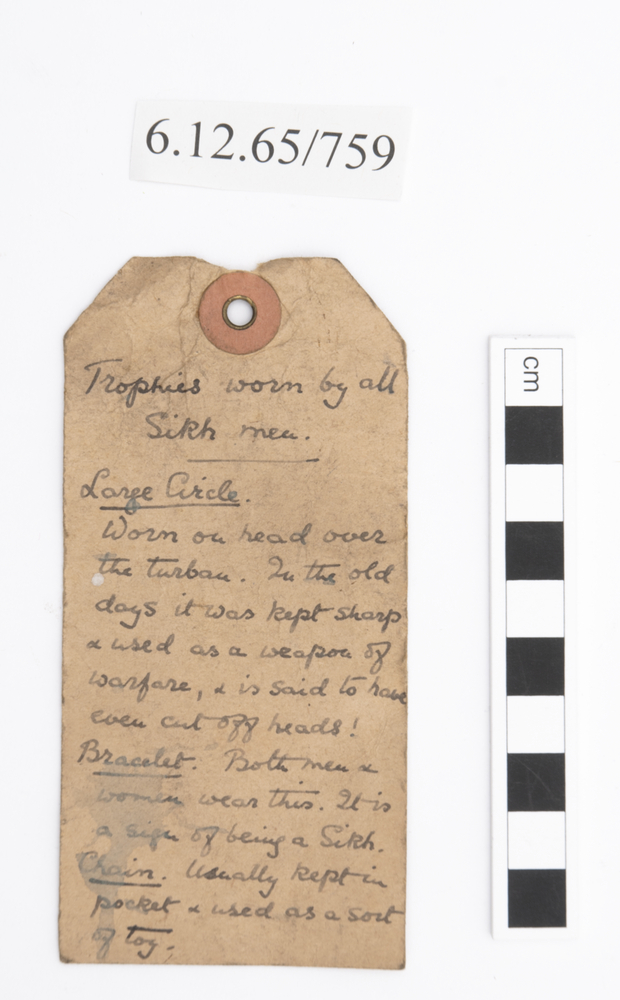 6.12.65/759
cm
Trophies worn by all
Sikh men.
Large Circle.
Worn on head over
the turban. In the old
days it was kept sharp
& used as a weapon of
warfare, & is said to have
even cut off heads!
Bracelet. Both men &
women wear this. It is
a sign of being a Sikh.
Chain. Usually kept in
pocket & used as a sort
of toy.